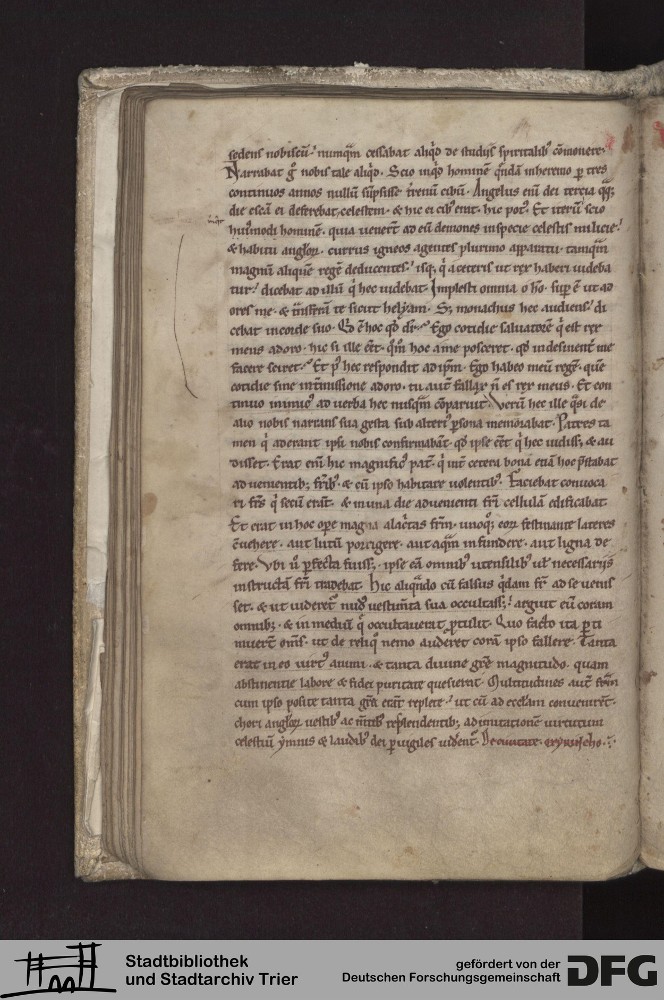 sedens nobiscū. nunquā cessabat aliqd de studijs spiritalib; cōmonere.
Narrabat g nobis tale aliqd. Scio inqd hominē quēdā in heremo p tres
continuos annos nullū sūpsisse trenū cibū. Angelus enī dei tercia qq;
die escā ei deferebat celestem. & hic ei cib; erat. hic pot;. Et iterū scio
hui;modi hominē. quia venerūt ad eū demones in specie celestis milicie.
& habitu anglor. currus igneos agentes plurimo apparatu. tamquā
magnū aliquē regē deducentes. isq; q a ceteris ut rex haberi videba
tur. dicebat ad illū q hec videbat. Implesti omnia o hō. sup ē ut ad
ores me. & trāsferā te sicut helyam. Sz monachus hec audiens. di
cebat in corde suo. Qd ē hoc qd dr. Ego cotidie saluatorē q est rex
meus adoro. hic si ille eēt. qm hoc a me posceret. qd indesinent me
facere sciret. Et p hec respondit ad ipm. Ego habeo meū regē. quē
cotidie sine intmissione adoro. tu aut fallax n es rex meus. Et con
tinuo inimic; ad verba hec nusqm cōparuit. Verū hec ille qsi de
alio nobis narrans sua gesta sub alteri; psona memorabat. Patres ta
men q aderant ipsi nobis confirmabāt. qd ipse eēt q hec vidiss; & au
disset. Erat enī hic magnific; pat. q int cetera bona etiā hoc pstabat
advenientib; frib; & cū ipso habitare volentib;. Faciebat convoca
ri frs q secū erāt. & in una die advenienti fri cellulā edificabat.
Et erat in hoc ope magna alacritas frm. unoq; eor festinante lateres
cvehere. aut lutū porrigere. aut aqm infundere. aut ligna de
ferre. Vbi v pfecta fuiss;. ipse eā omnib; utensilib; vl necessarijs
instructā fri tradebat. Hic aliqndo cū falsus qdam fr ad se venis
set. & ut videret nud; vestimta sua occultass;. arguit eū coram
omnib;. & in mediū q occultaverat ptulit. Quo facto ita pti
muert oms. ut de reliq nemo auderet corā ipso fallere. Tanta
erat in eo virt; animi. & tanta divine gre magnitudo. quam
abstinentie labore & fidei puritate quesierat. Multitudines aut frm
cum ipso posite tanta gra erant replete. ut cū ad ecclam convenirēt.
chori anglor vestib; ac mtib; resplendentib; ad imitationē virtutum
celestiū ymnis & laudib; dei pvigiles viderent. De civitate.
Stadtbibliothek
und Stadtarchiv Trier
gefördert von der
Deutschen Forschungsgemeinschaft
DFG